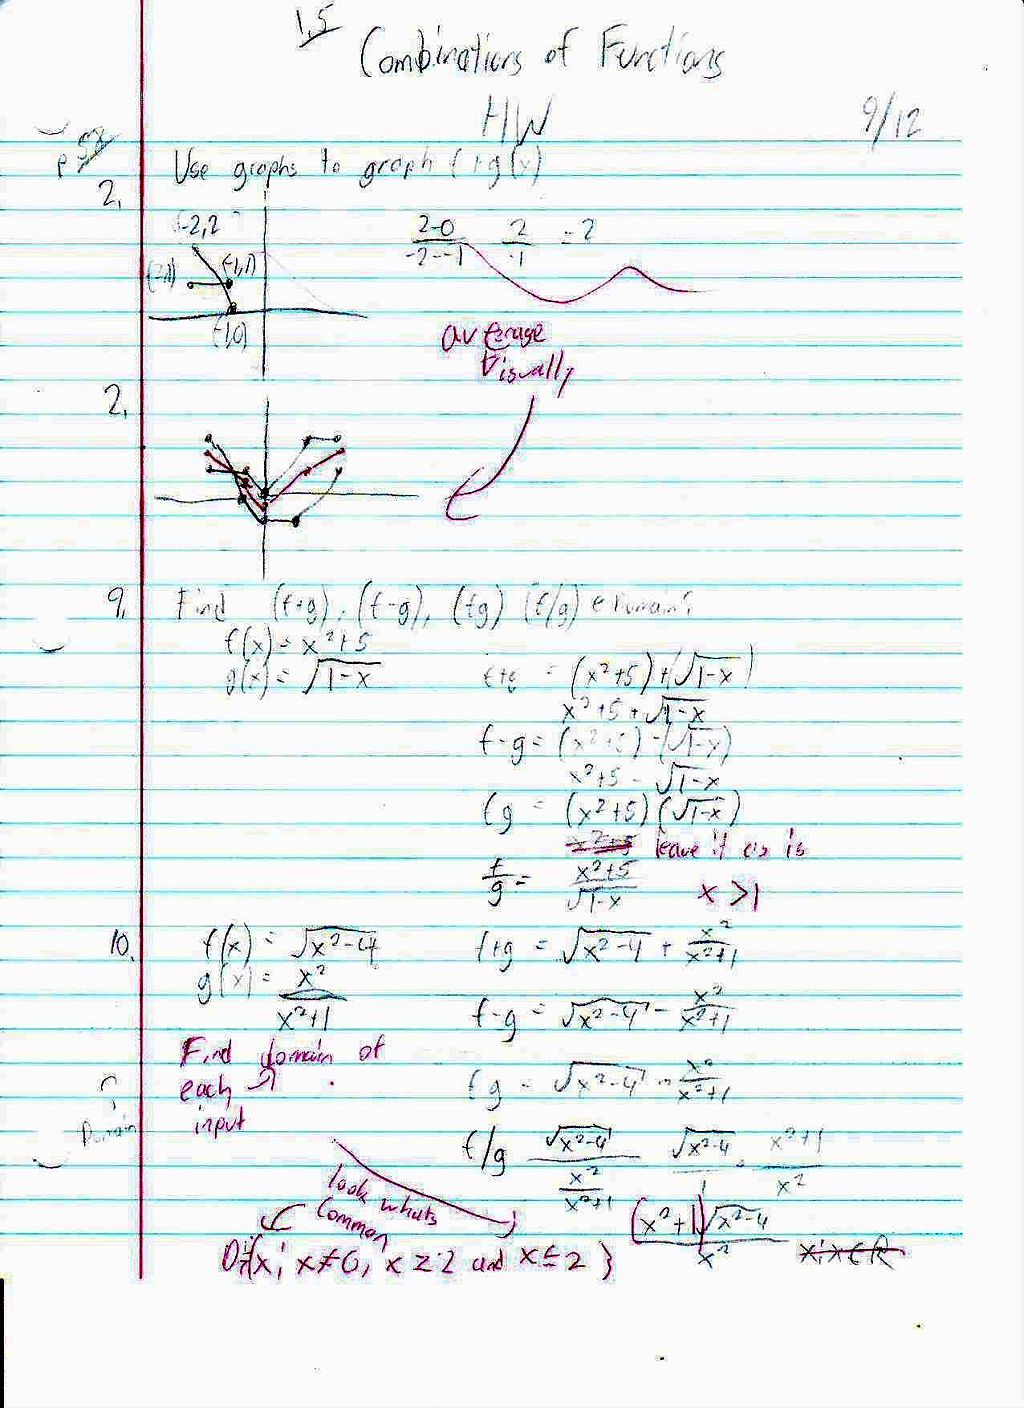 1.5
Combinations of Functions
HW
9/12
p 52
2. Use graphs to graph f+g(x)
(-2,2
(-1,1)
(-1,0)
2-0/-2--1 2/-1 = 2
average
Visually
2.
9. Find (f+g), (f-g), (fg) (f/g) & Domain?
f(x) = x²+5
g(x) = √1-x
f+g = (x²+5)+(√1-x)
x²+5+√1-x
f-g = (x²+5)-(√1-x)
x²+5 - √1-x
fg = (x²+5)(√1-x)
x²+5 leave it as is
f/g = x²+5/√1-x x>1
10. f(x) = √x²-4
g(x) = x²/x²+1
f+g = √x²-4 + x²/x²+1
f-g = √x²-4 - x²/x²+1
Find domain of
each
input
fg = √x²-4 · x²/x²+1
Domain
f/g √x²-4/x²/x²+1 √x²-4/1 · x²+1/x²
look whats
Common
(x²+1)√x²-4/x²
D:{x; x≠0, x≥2 and x≤2 } x; x∈R